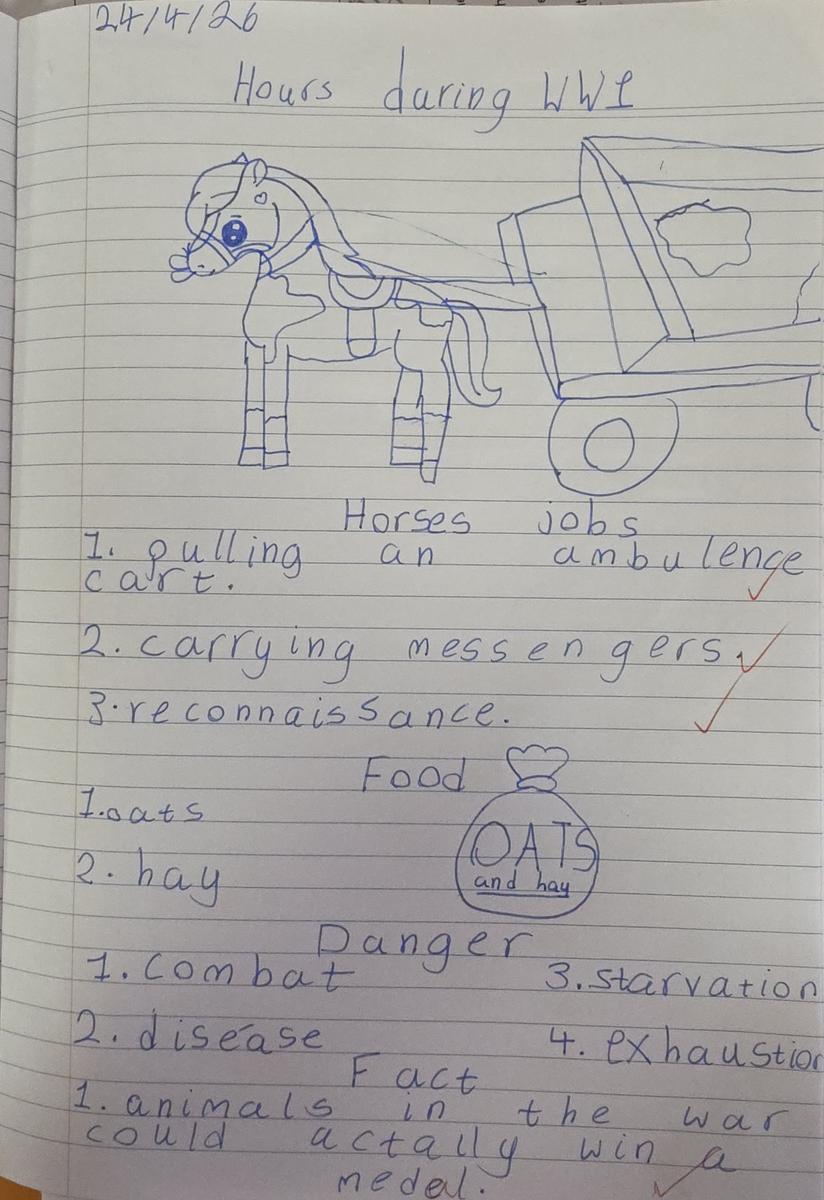 24/4/26
Hours during WW1
Horses jobs
1. pulling an ambulence
cart.
2. carrying messengers.
3. reconnaissance.
Food
1. oats
OATS
and hay
2. hay
Danger
1. combat
3. starvation
2. disease
4. exhaustion
Fact
1. animals in the war
could actally win a
medel.